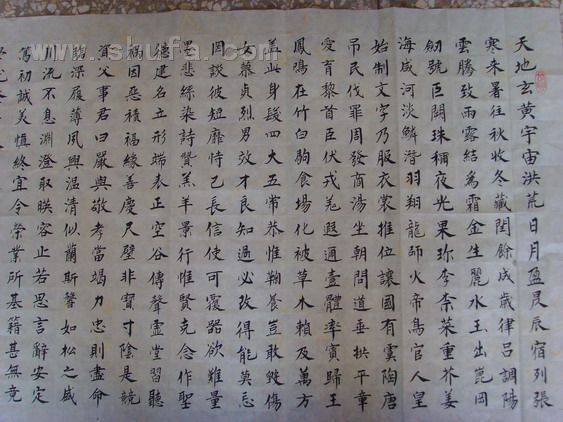 天地玄黃宇宙洪荒日月盈昃辰宿列張
寒来暑往秋收冬藏閏餘成歲律呂調陽
雲騰致雨露結爲霜金生麗水玉出崑岡
劒號巨闕珠稱夜光果珍李柰菜重芥姜
海咸河淡鱗潛羽翔龍師火帝鳥官人皇
始制文字乃服衣裳推位讓國有虞陶唐
吊民伐罪周發商湯坐朝問道垂拱平章
愛育黎首臣伏戎羌遐邇壹體率賓歸王
鳳鳴在竹白駒食場化被草木賴及萬方
蓋此身髮四大五常恭惟鞠養豈敢毀傷
女慕貞烈男效才良知過必改得能莫忘
罔談彼短靡恃己長信使可覆器欲難量
墨悲絲染詩贊羔羊景行惟賢克念作聖
德建名立形端表正空谷傳聲虛堂習聽
禍因惡積福緣善慶尺璧非寶寸陰是競
資父事君曰嚴與敬孝當竭力忠則盡命
臨深履薄夙興温清似蘭斯馨如松之盛
川流不息淵澄取映容止若思言辭安定
篤初誠美慎終宜令榮業所基籍甚無竟